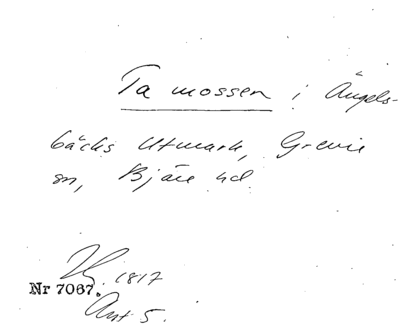 Ta mossen i Ängels-
bäcks Utmark, Grevie
sn, Bjäre hd.
1817
Nr 7067.
Akt 5.